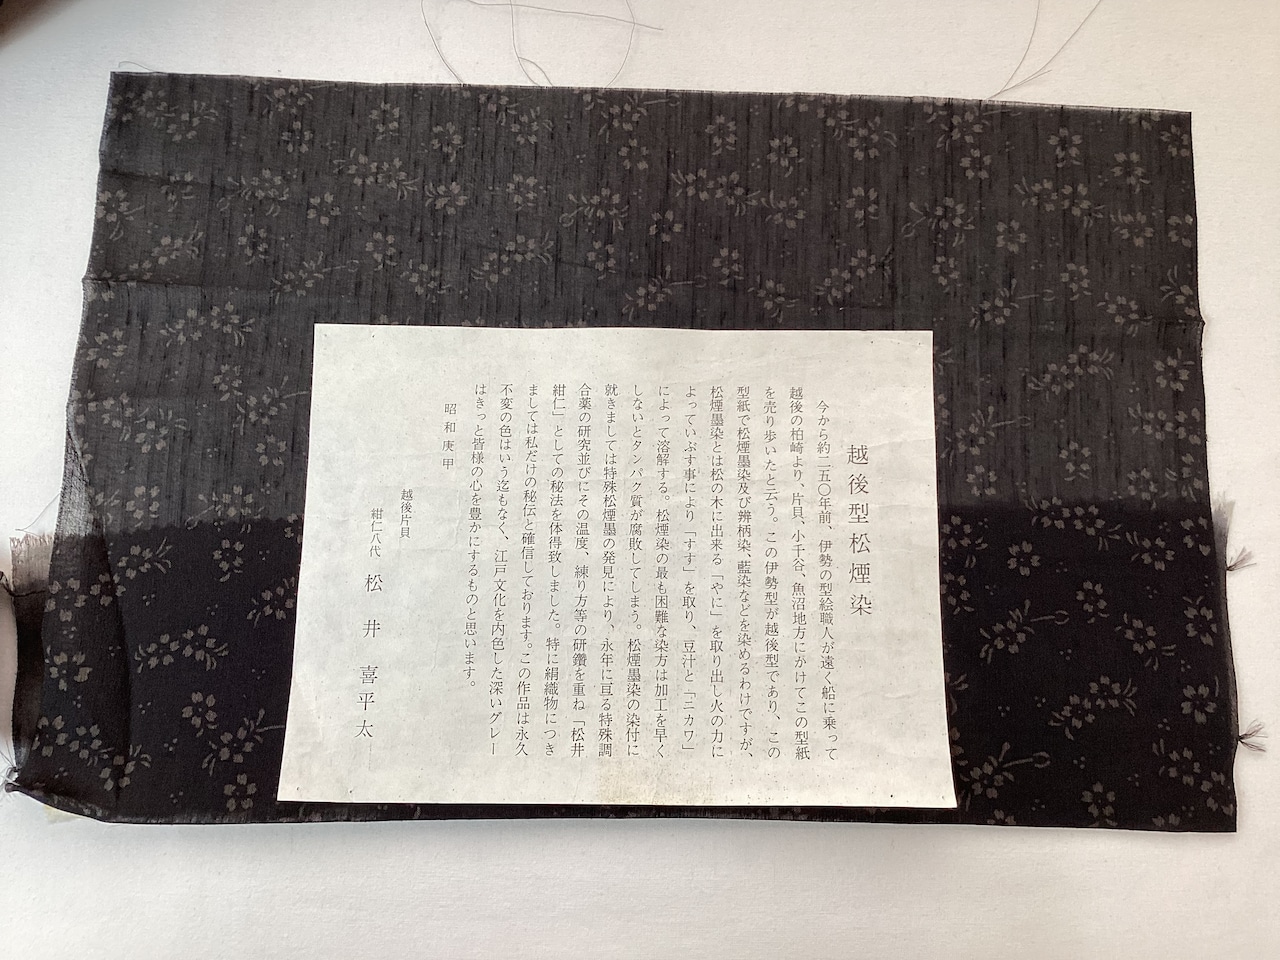 越後型松煙染
今から約二五〇年前、伊勢の型絵職人が遠く船に乗って
越後の柏崎より、片貝、小千谷、魚沼地方にかけてこの型紙
を売り歩いたと云う。この伊勢型が越後型であり、この
型紙で松煙墨染及び辨柄染、藍染などを染めるわけですが、
松煙墨染とは松の木に出来る「やに」を取り出し火の力に
よっていぶす事により「すす」を取り、豆汁と「ニカワ」
によって溶解する。松煙染の最も困難な染方は加工を早く
しないとタンパク質が腐敗してしまう。松煙墨染の染付に
就きましては特殊松煙墨の発見により、永年に亘る特殊調
合薬の研究並びにその温度、練り方等の研鑽を重ね「松井
紺仁」としての秘法を体得致しました。特に絹織物につき
ましては私だけの秘伝と確信しております。この作品は永久
不変の色はいう迄もなく、江戸文化を内色した深いグレー
はきっと皆様の心を豊かにするものと思います。
昭和庚申
越後片貝
紺仁八代 松井喜平太